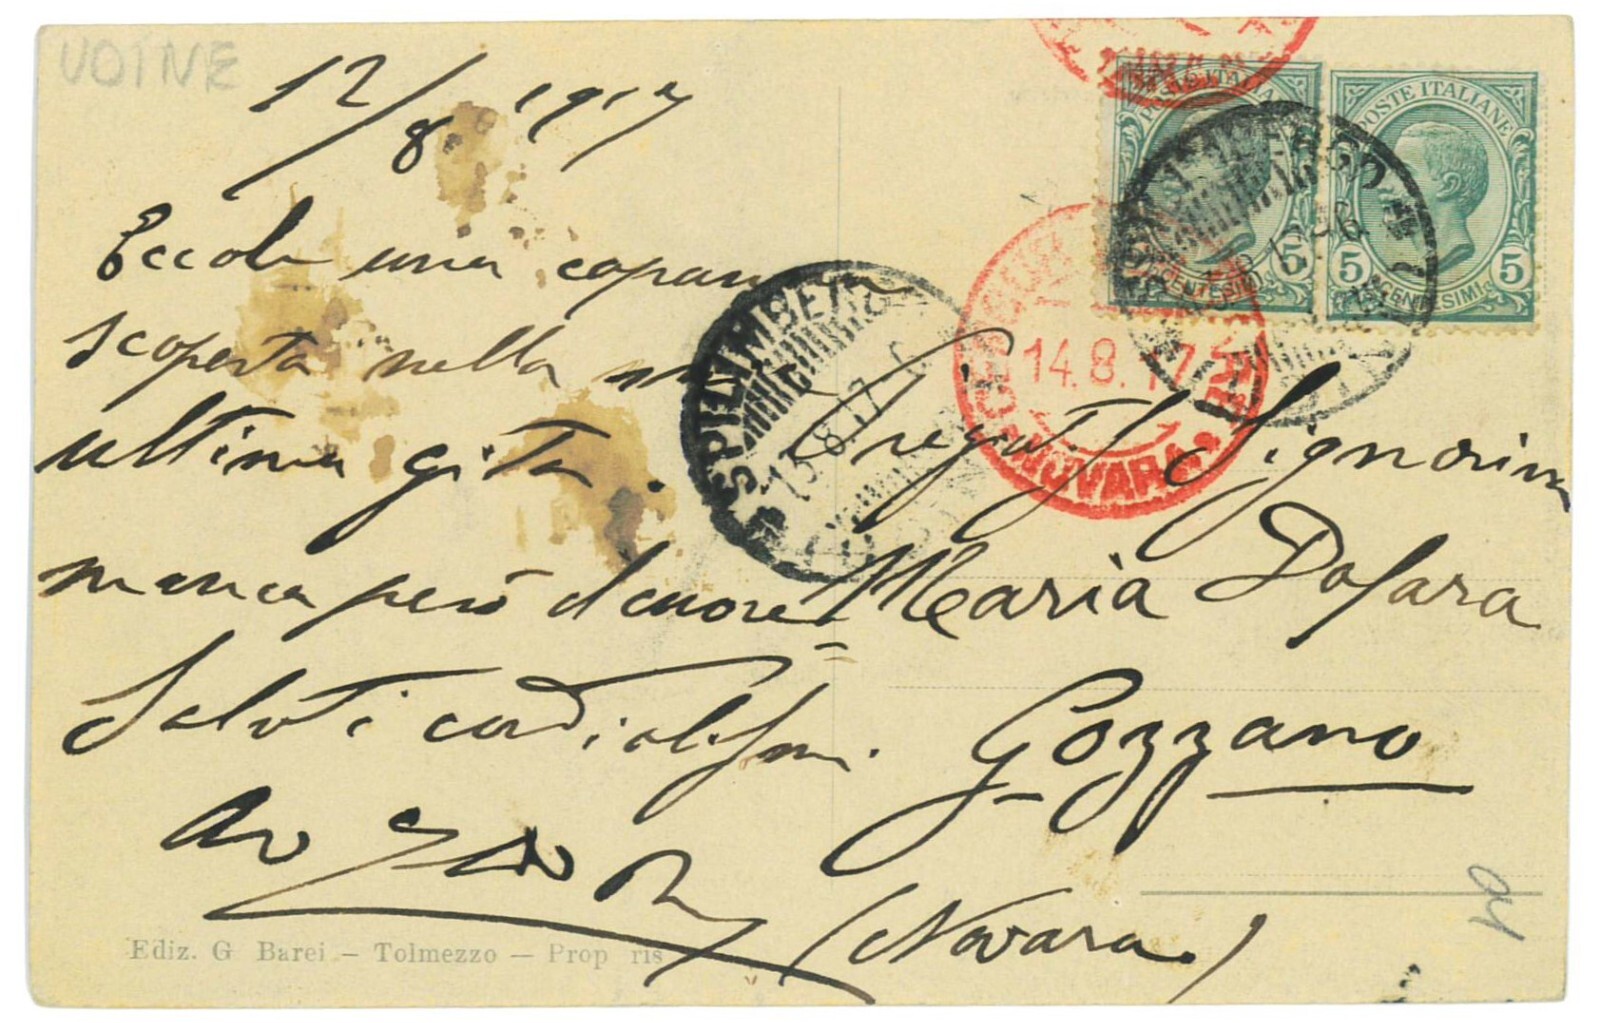 UDINE
12/8 1917
Eccole una capanna
scoperta nella mia
ultima gita.
manca però il cuore!
Saluti cordialissimi.
POSTE ITALIANE
5 CENTESIMI 5
POSTE ITALIANE
5 CENTESIMI 5
SPILIMBERGO
13.8.17
14.8.17
NOVARA
Pregat. Signorina
Maria Dofara
Gozzano
(Novara)
Ediz. G. Barei – Tolmezzo – Prop ris